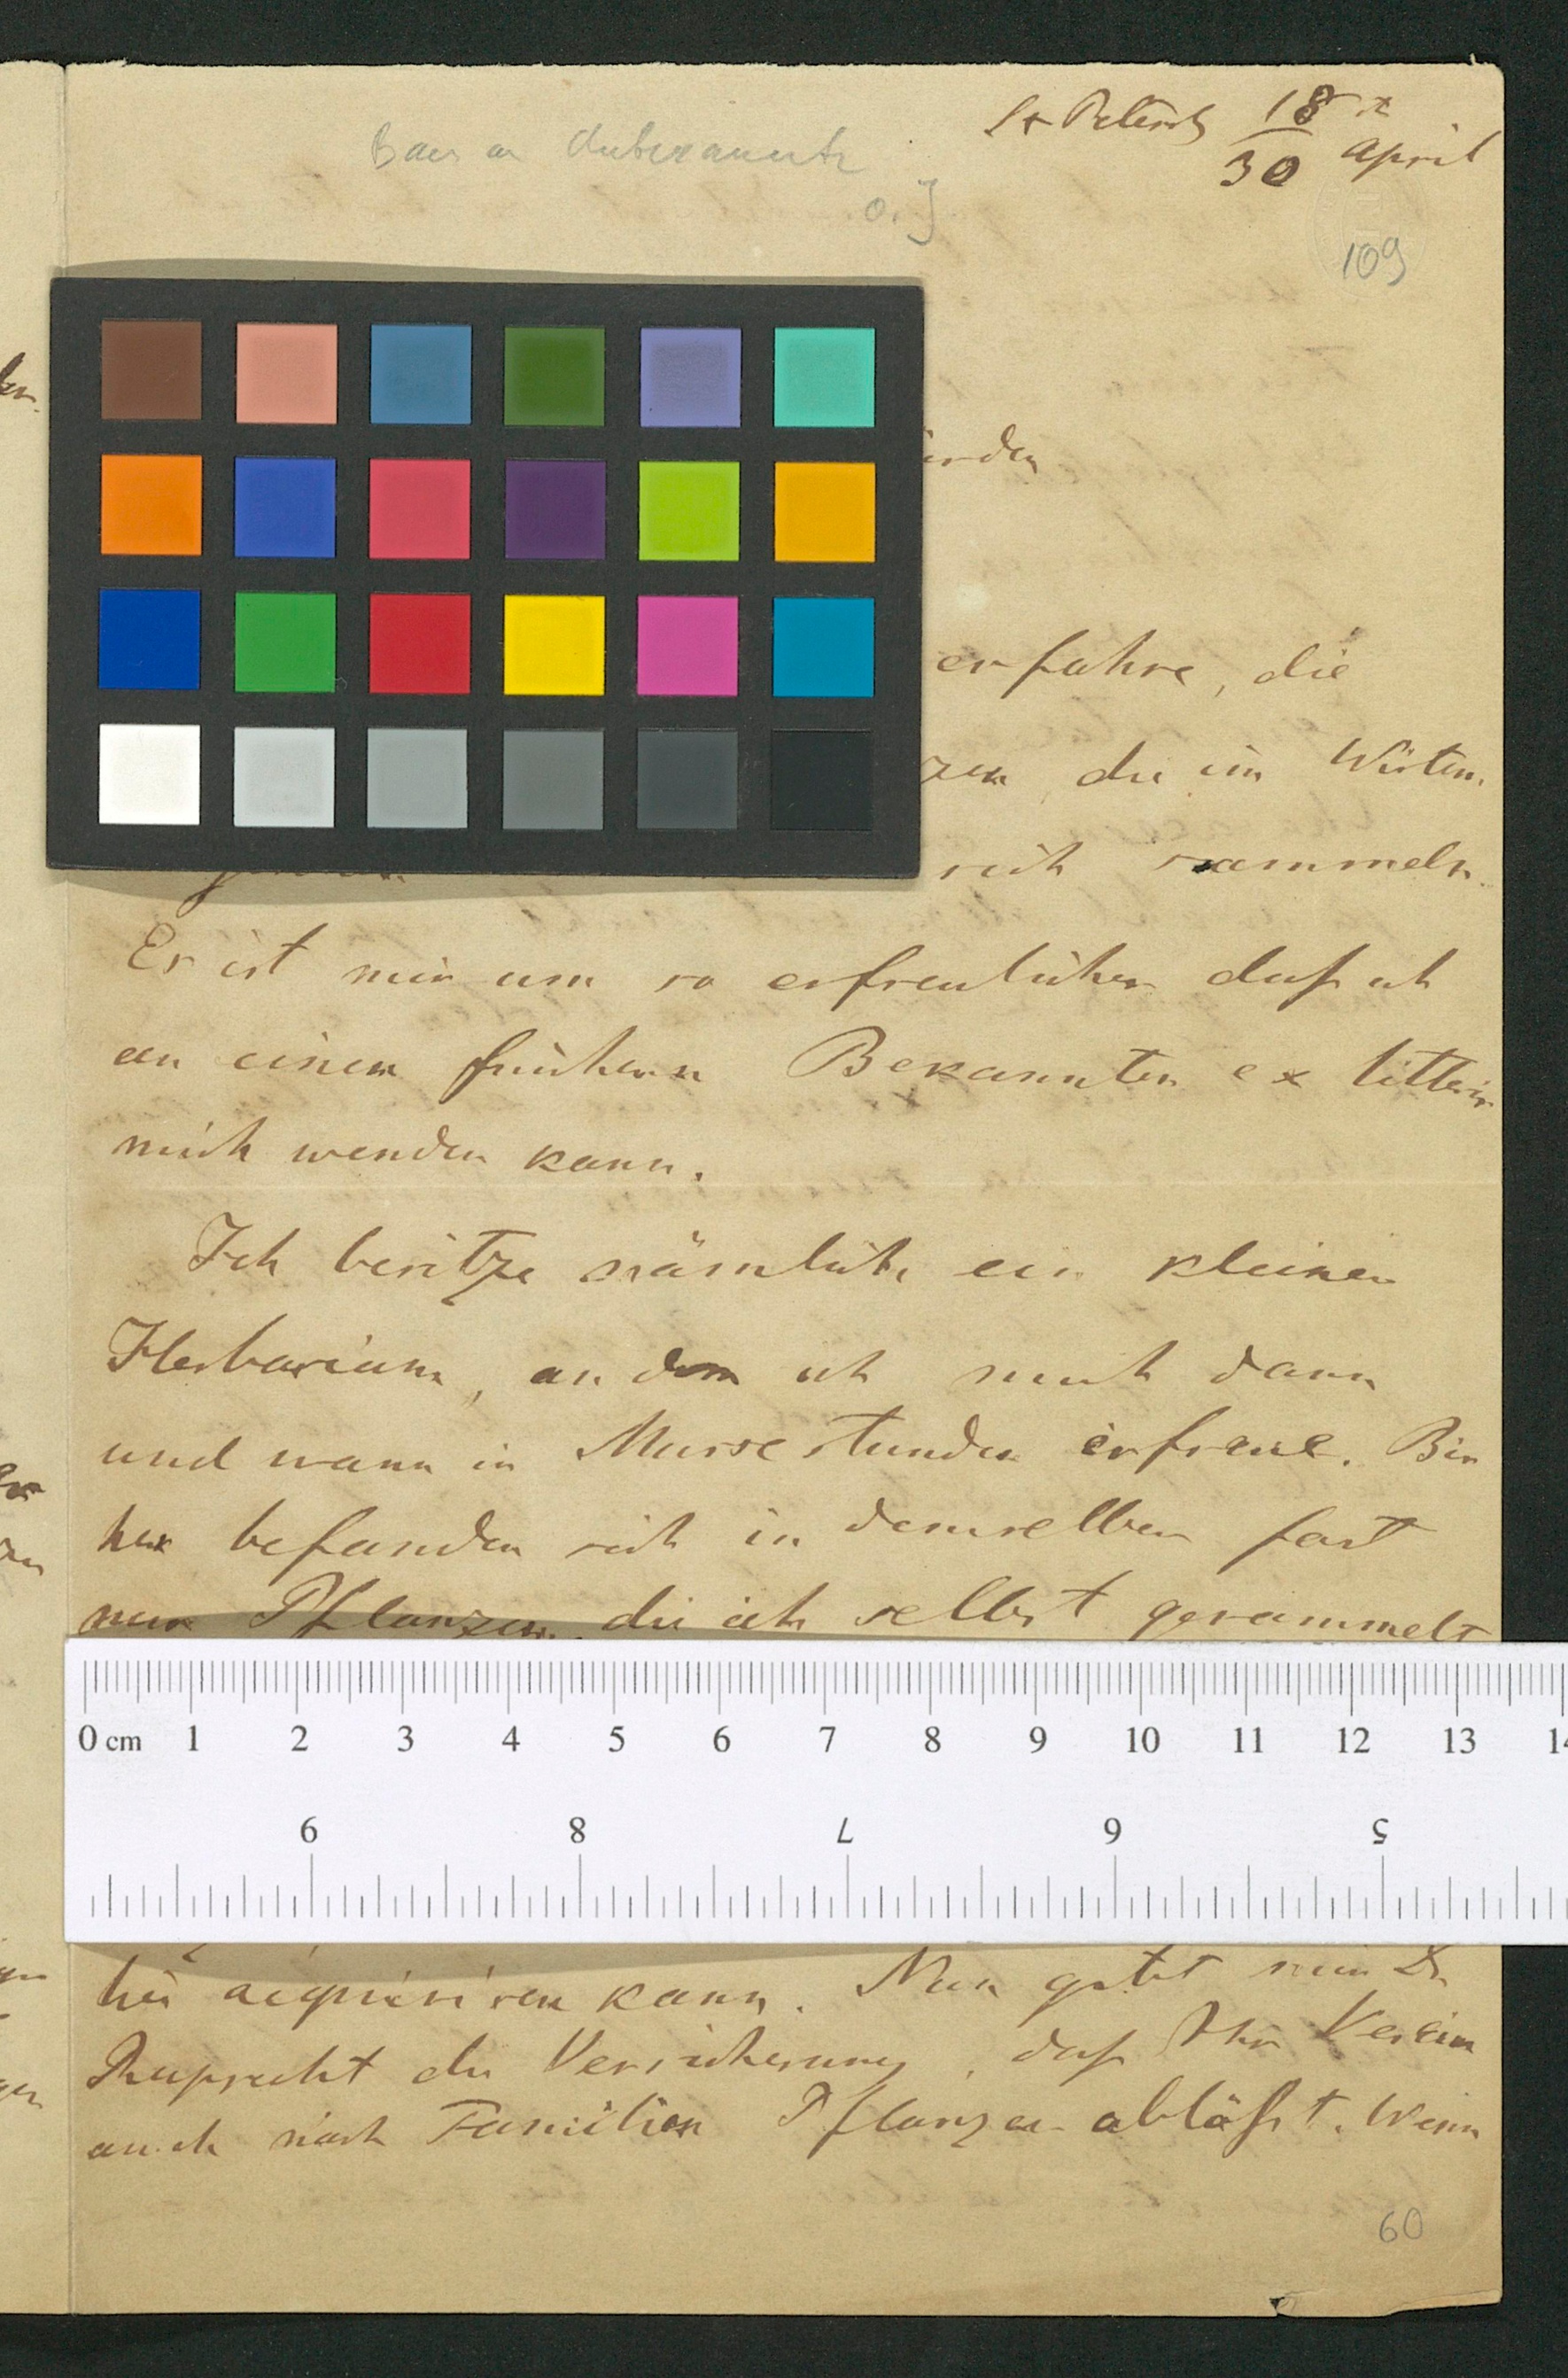 St Petersb 18/30 st April
Baer an Unbekannte
o. J
109
erfahre, die
die im Würtem.
sich sammeln.
Es ist mir um so erfreulicher daß ich
an einen frühern Bekannten ex litteris
mich wenden kann.
Ich besitze nämlich ein kleines
Herbarium, an dem ich mich dann
und wann in Mussestunden erfreue. Bis
her befanden sich in demselben fast
nur Pflanzen, die ich selbst gesammelt
0 cm 1 2 3 4 5 6 7 8 9 10 11 12 13 14
9 8 7 6 5
hie acquiriren kann. Nun giebt mir Dr
Ruprecht die Versicherung, daß Ihr Verein
auch nach Familien Pflanzen abläßt. Wenn
60